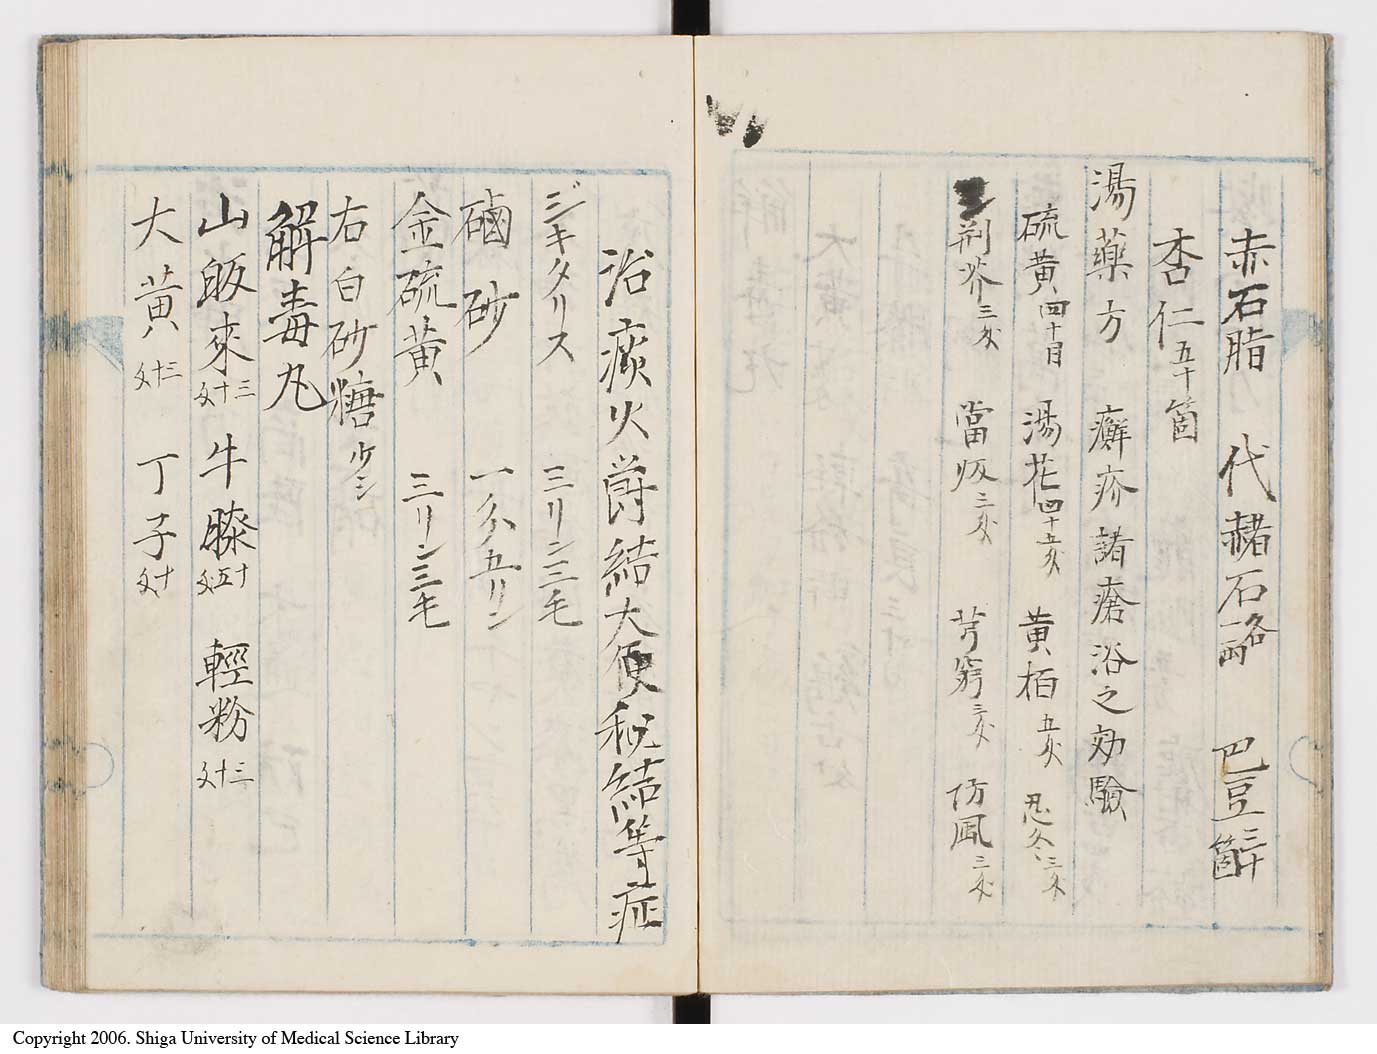 赤石脂 代赭石 各一兩 巴豆 三十箇
杏仁 五十箇
湯藥方 癬疥諸瘡浴之効驗
硫黄 四十目 湯花 四十五匁 黄栢 五匁 忍冬 三匁
荊芥 三匁 當皈 三匁 芎窮 三匁 防風 三匁
治痰火欝結大便秘結等症
ジキタリス 三リン三毛
磠砂 一分五リン
金硫黄 三リン三毛
右白砂糖 少シ
解毒丸
山皈來 三十匁 牛膝 十五匁 輕粉 三十匁
大黄 三十匁 丁子 十匁
Copyright 2006. Shiga University of Medical Science Library